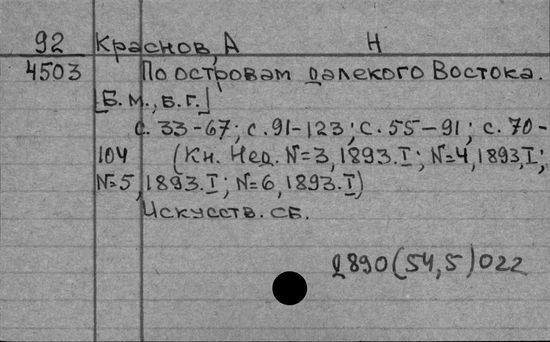 92 Краснов, А Н
4503 По островам далекого Востока.
[Б.м., б.г.]
с. 33-67; с. 91-123; с. 55-91; с. 70-
104 (Кн. Нед. №=3, 1893.I; №=4, 1893,I;
№=5, 1893.I; №=6, 1893.I)
Искусств. сб.
2890(54,5)022